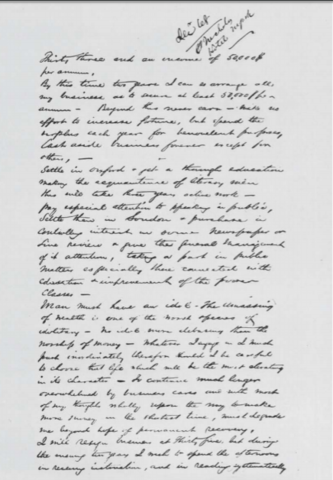 Dec '68
St. Nicholas
Hotel N York
Thirty three and an income of 50,000$
per annum,
By this time two years I can so arrange all
my business as to secure at least 50,000$ per
annum — Beyond this never earn — make no
effort to increase fortune, but spend the
surplus each year for benevolent purposes,
Cast aside business forever except for
others, —
Settle in Oxford & get a thorough education
making the acquaintance of literary men
this will take three years active work —
pay especial attention to speaking in public,
Settle then in London & purchase a
controlling interest in some Newspaper or
live review & give the general management
of it attention, taking a part in public
matters especially those connected with
education & improvement of the poorer
classes —
Man must have an idol — The amassing
of wealth is one of the worst species of
idolatry — No idol more debasing than the
worship of money — Whatever I engage in I must
push inordinately therefor should I be careful
to choose that life which will be the most elevating
in its character — To continue much longer
overwhelmed by business cares and with most
of my thoughts wholly upon the way to make
more money in the shortest time, must degrade
me beyond hope of permanent recovery,
I will resign business at thirty five, but during
the ensuing two years I wish to spend the afternoons
in receiving instruction, and in reading systematically